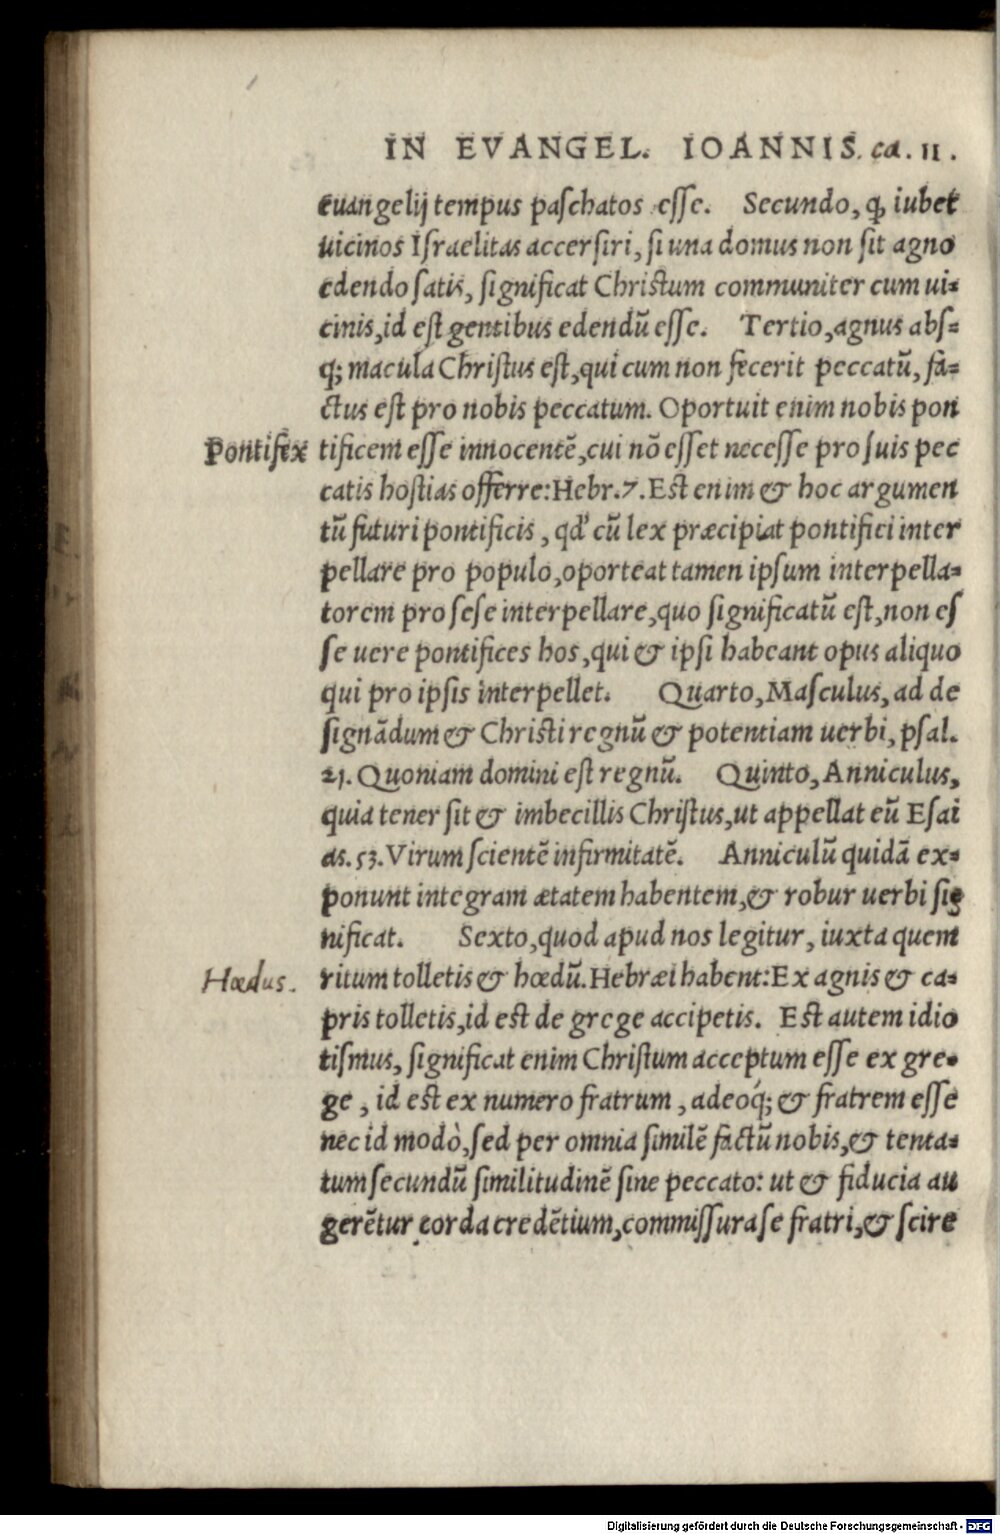 IN EVANGEL. IOANNIS. ca. II.
euangelij tempus paſchatos eſſe. Secundo, ꝙ iubet
uicinos Iſraelitas accerſiri, ſi una domus non ſit agno
edendo ſatis, ſignificat Chriſtum communiter cum ui⸗
cinis, id eſt gentibus edendū eſſe. Tertio, agnus abſ⸗
q; macula Chriſtus eſt, qui cum non fecerit peccatū, fa⸗
ctus eſt pro nobis peccatum. Oportuit enim nobis pon
Pontifex
tificem eſſe innocentē, cui nō eſſet neceſſe pro ſuis pec
catis hoſtias offerre: Hebr. 7. Eſt enim & hoc argumen
tū futuri pontificis, qd' cū lex præcipiat pontifici inter
pellare pro populo, oporteat tamen ipſum interpella⸗
torem pro ſeſe interpellare, quo ſignificatū eſt, non eſ
ſe uere pontifices hos, qui & ipſi habeant opus aliquo
qui pro ipſis interpellet. Quarto, Maſculus, ad de
ſignādum & Chriſti regnū & potentiam uerbi, pſal.
21. Quoniam domini eſt regnū. Quinto, Anniculus,
quia tener ſit & imbecillis Chriſtus, ut appellat eū Eſai
as. 53. Virum ſcientē infirmitatē. Anniculū quidā ex⸗
ponunt integram ætatem habentem, & robur uerbi ſig
nificat. Sexto, quod apud nos legitur, iuxta quem
Hœdus.
ritum tolletis & hœdū. Hebræi habent: Ex agnis & ca⸗
pris tolletis, id eſt de grege accipetis. Eſt autem idio
tiſmus, ſignificat enim Chriſtum acceptum eſſe ex gre⸗
ge, id eſt ex numero fratrum, adeoq́; & fratrem eſſe
nec id modò, ſed per omnia ſimilē factū nobis, & tenta⸗
tum ſecundū ſimilitudinē ſine peccato: ut & fiducia au
gerētur corda credētium, commiſſura ſe fratri, & ſcire
Digitalisierung gefördert durch die Deutsche Forschungsgemeinschaft - DFG